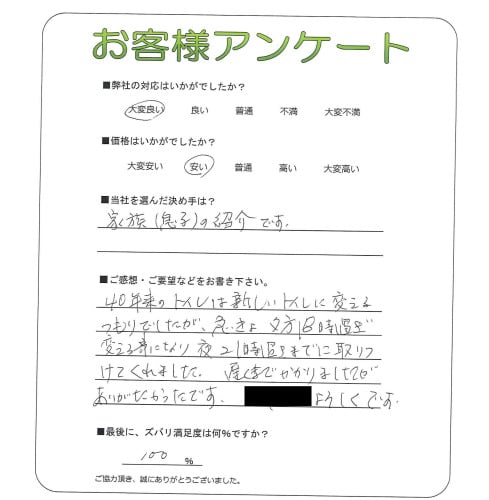 お客様アンケート
■弊社の対応はいかがでしたか？
大変良い 良い 普通 不満 大変不満
■価格はいかがでしたか？
大変安い 安い 普通 高い 大変高い
■当社を選んだ決め手は？
家族(息子)の紹介です。
■ご感想・ご要望などをお書き下さい。
40年来のトイレは新しいトイレに変える
つもりでしたが、急きょ夕方18時過ぎ
変える事になり夜21時過ぎまでに取りつ
けてくれました。遅くまでかかりましたが
ありがたかったです。 よろしくです。
■最後に、ズバリ満足度は何％ですか？
100 ％
ご協力頂き、誠にありがとうございました。